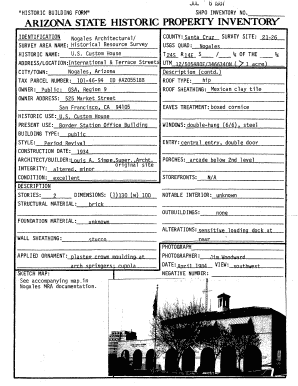 "HISTORIC BUILDING FORM"
SHPO INVENTORY NO.
ARIZONA STATE HISTORIC PROPERTY INVENTORY
IDENTIFICATION Nogales Architectural/
SURVEY AREA NAME: Historical Resource Survey
HISTORIC NAME: U.S. Custom House
ADDRESS/LOCATION: International & Terrace Streets
CITY/TOWN: Nogales, Arizona
TAX PARCEL NUMBER: 101-46-94
OWNER: Public: GSA, Region 9
OWNER ADDRESS: 525 Market Street
San Francisco, CA 94105
HISTORIC USE: U.S. Custom House
PRESENT USE: Border Station Office Building
BUILDING TYPE: public
STYLE: Period Revival
CONSTRUCTION DATE: 1934
ARCHITECT/BUILDER: Louis A. Simon, Super. Archt.
original site
INTEGRITY: altered, minor
CONDITION: excellent
DESCRIPTION
STORIES: 2 DIMENSIONS: (l)130 (w) 100
STRUCTURAL MATERIAL: brick
FOUNDATION MATERIAL: unknown
WALL SHEATHING: stucco
APPLIED ORNAMENT: plaster crown moulding at
arch springers; cupola
COUNTY: Santa Cruz SURVEY SITE: 21-26
USGS QUAD: Nogales
T 24S R 14E S / ¼ OF THE ¼
UTM
Description (contd.)
ROOF TYPE: hip
ROOF SHEATHING: Mexican clay tile
EAVES TREATMENT: boxed cornice
WINDOWS: double-hung (6/6), steel
ENTRY: central entry, double door
PORCHES: arcade below 2nd level
STOREFRONTS: N/A
NOTABLE INTERIOR: unknown
OUTBUILDINGS: none
ALTERATIONS: sensitive loading dock at
rear
PHOTOGRAPH
PHOTOGRAPHER: Jim Woodward
DATE: April 1984 VIEW: southwest
NEGATIVE NUMBER:
SKETCH MAP:
See accompanying map in
Nogales MRA documentation.